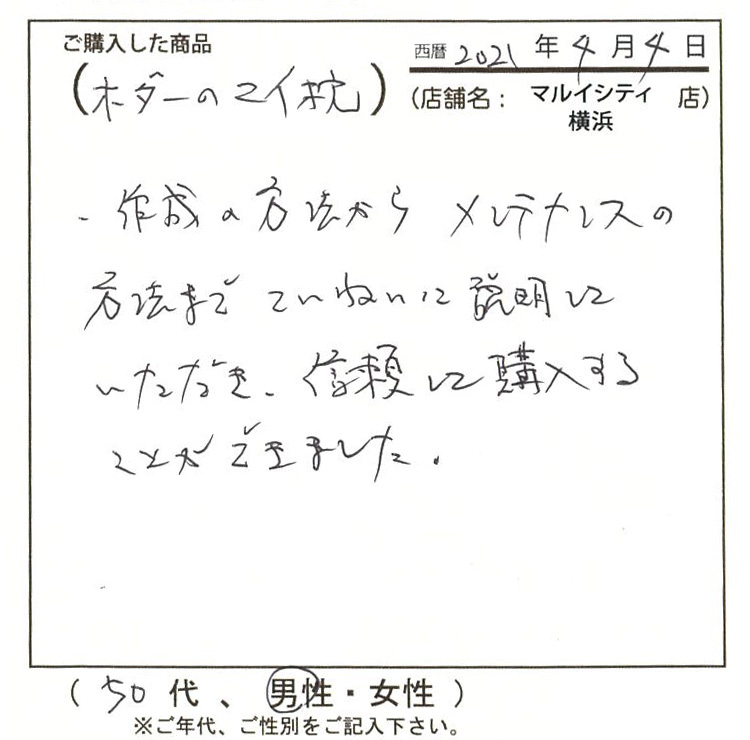 ご購入した商品
西暦 2021 年 4 月 4 日
(ホダーのマイ枕)
(店舗名: マルイシティ横浜 店)
・作成の方法から メンテナンスの
方法まで ていねいに説明して
いただき、信頼して購入する
ことができました。
( 50 代 、 男性・女性 )
※ご年代、ご性別をご記入下さい。